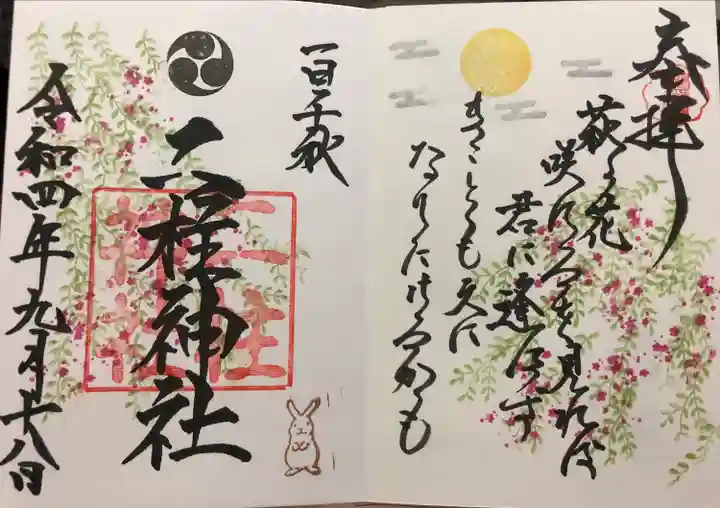 奉拝
萩の花
咲けるを見れば
君に逢はず
まことも久に
なりにけるかも
百千秋
二柱神社
二柱
神社
令和四年九月十八日